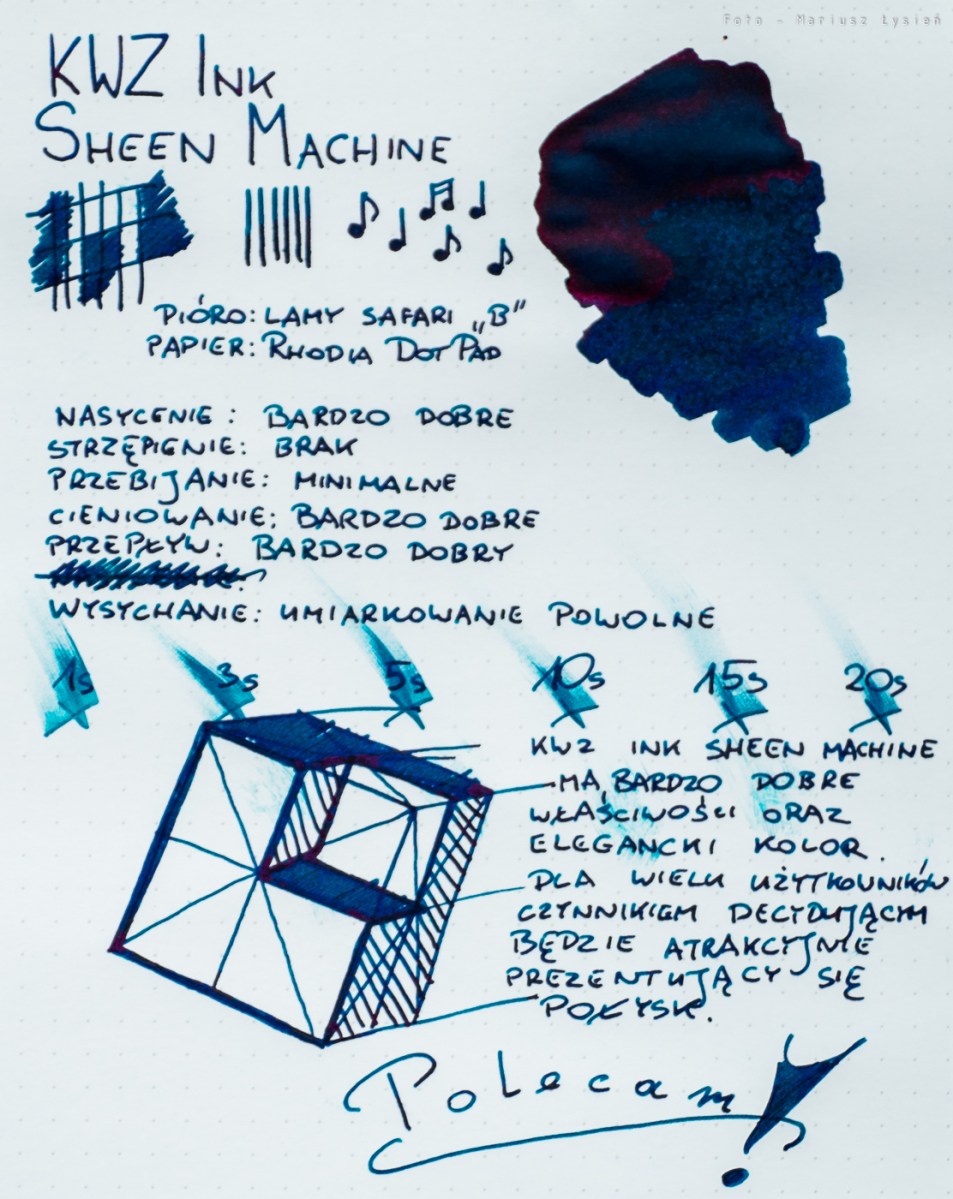 Foto - Mariusz Łysień
KWZ INK
SHEEN MACHINE
PIÓRO: LAMY SAFARI „B”
PAPIER: RHODIA DOT PAD
NASYCENIE: BARDZO DOBRE
STRZĘPIENIE: BRAK
PRZEBIJANIE: MINIMALNE
CIENIOWANIE: BARDZO DOBRE
PRZEPŁYW: BARDZO DOBRY
WYSYCHANIE: UMIARKOWANIE POWOLNE
1s 3s 5s 10s 15s 20s
KWZ INK SHEEN MACHINE
MA BARDZO DOBRE
WŁAŚCIWOŚCI ORAZ
ELEGANCKI KOLOR.
DLA WIELU UŻYTKOWNIKÓW
CZYNNIKIEM DECYDUJĄCYM
BĘDZIE ATRAKCYJNIE
PREZENTUJĄCY SIĘ
POŁYSK.
Polecam!